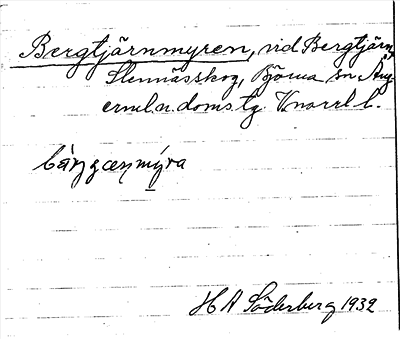 Bergtjärnmyren, vid Bergtjärn,
Slennässkog, Björna sn Ång
erml.n.doms.tg. V.norrl l.
bàŋgæŋmýra
H A Söderberg 1932